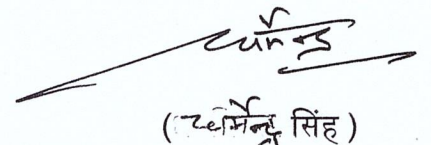 धर्मेन्द्र
(धर्मेन्द्र सिंह)